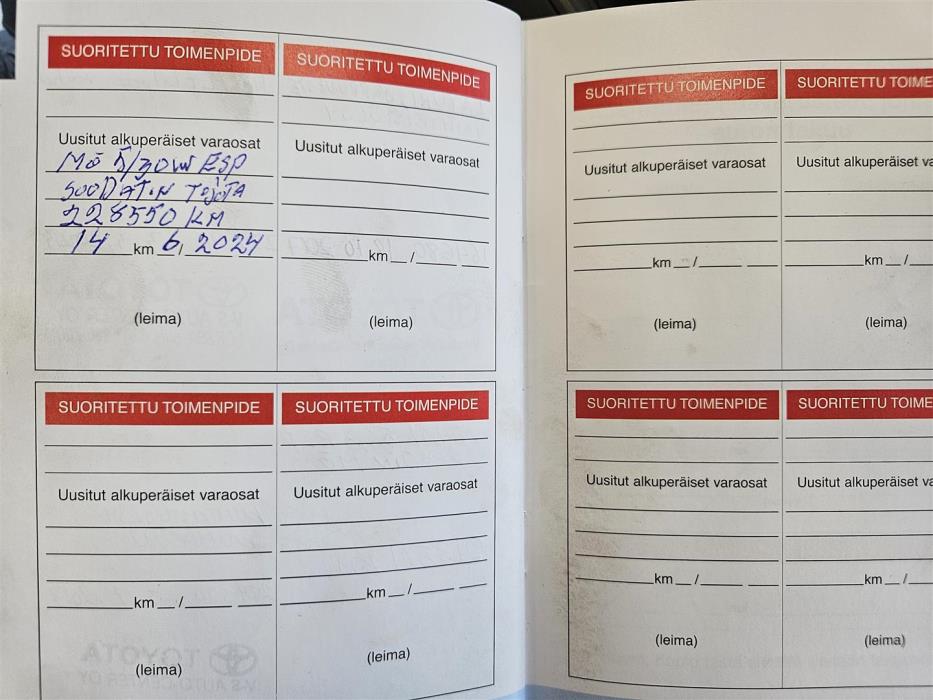 SUORITETTU TOIMENPIDE
Uusitut alkuperäiset varaosat
Mö 5/30W ESP
SUODATIN TOJOTA
228550 KM
14 km 6, 2024
(leima)
SUORITETTU TOIMENPIDE
Uusitut alkuperäiset varaosat
km /
(leima)
SUORITETTU TOIMENPIDE
Uusitut alkuperäiset varaosat
km /
(leima)
SUORITETTU TOIME
Uusitut alkuperäiset va
km /
(leima)
SUORITETTU TOIMENPIDE
Uusitut alkuperäiset varaosat
km /
(leima)
SUORITETTU TOIMENPIDE
Uusitut alkuperäiset varaosat
km /
(leima)
SUORITETTU TOIMENPIDE
Uusitut alkuperäiset varaosat
km /
(leima)
SUORITETTU TOIME
Uusitut alkuperäiset va
km /
(leima)